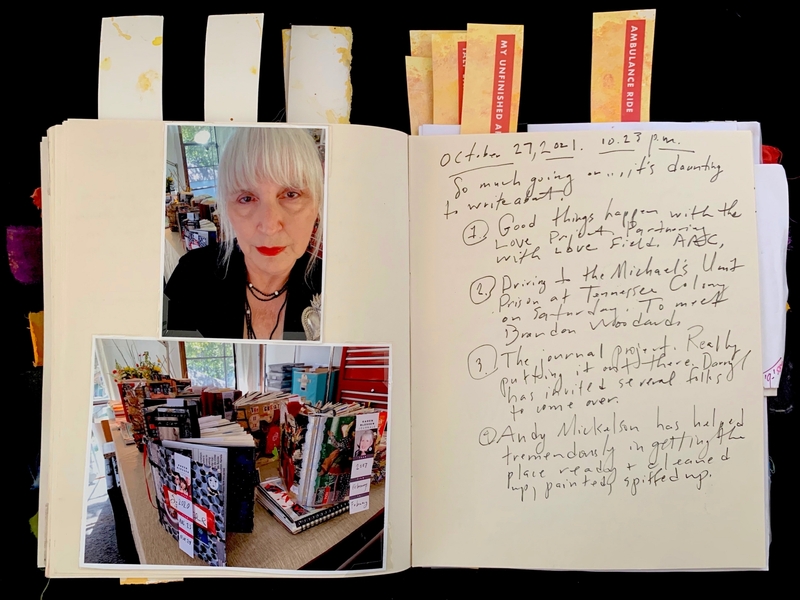 MY UNFINISHED
AMBULANCE RIDE
October 27, 2021. 10:23 p.m.
So much going on...it's daunting
to write about!
① Good things happen with the
Love Project. Partnering
with Love Field. AAEC,
② Driving to the Michael's Unit
Prison at Tennessee Colony
on Saturday. To meet
Brandon Woodard.
③ The journal project. Really
putting it out there.
has invited several folks
to come over.
④ Andy Mickelson has helped
tremendously in getting the
place ready + cleaned
up, painted, spiffed up.
2007